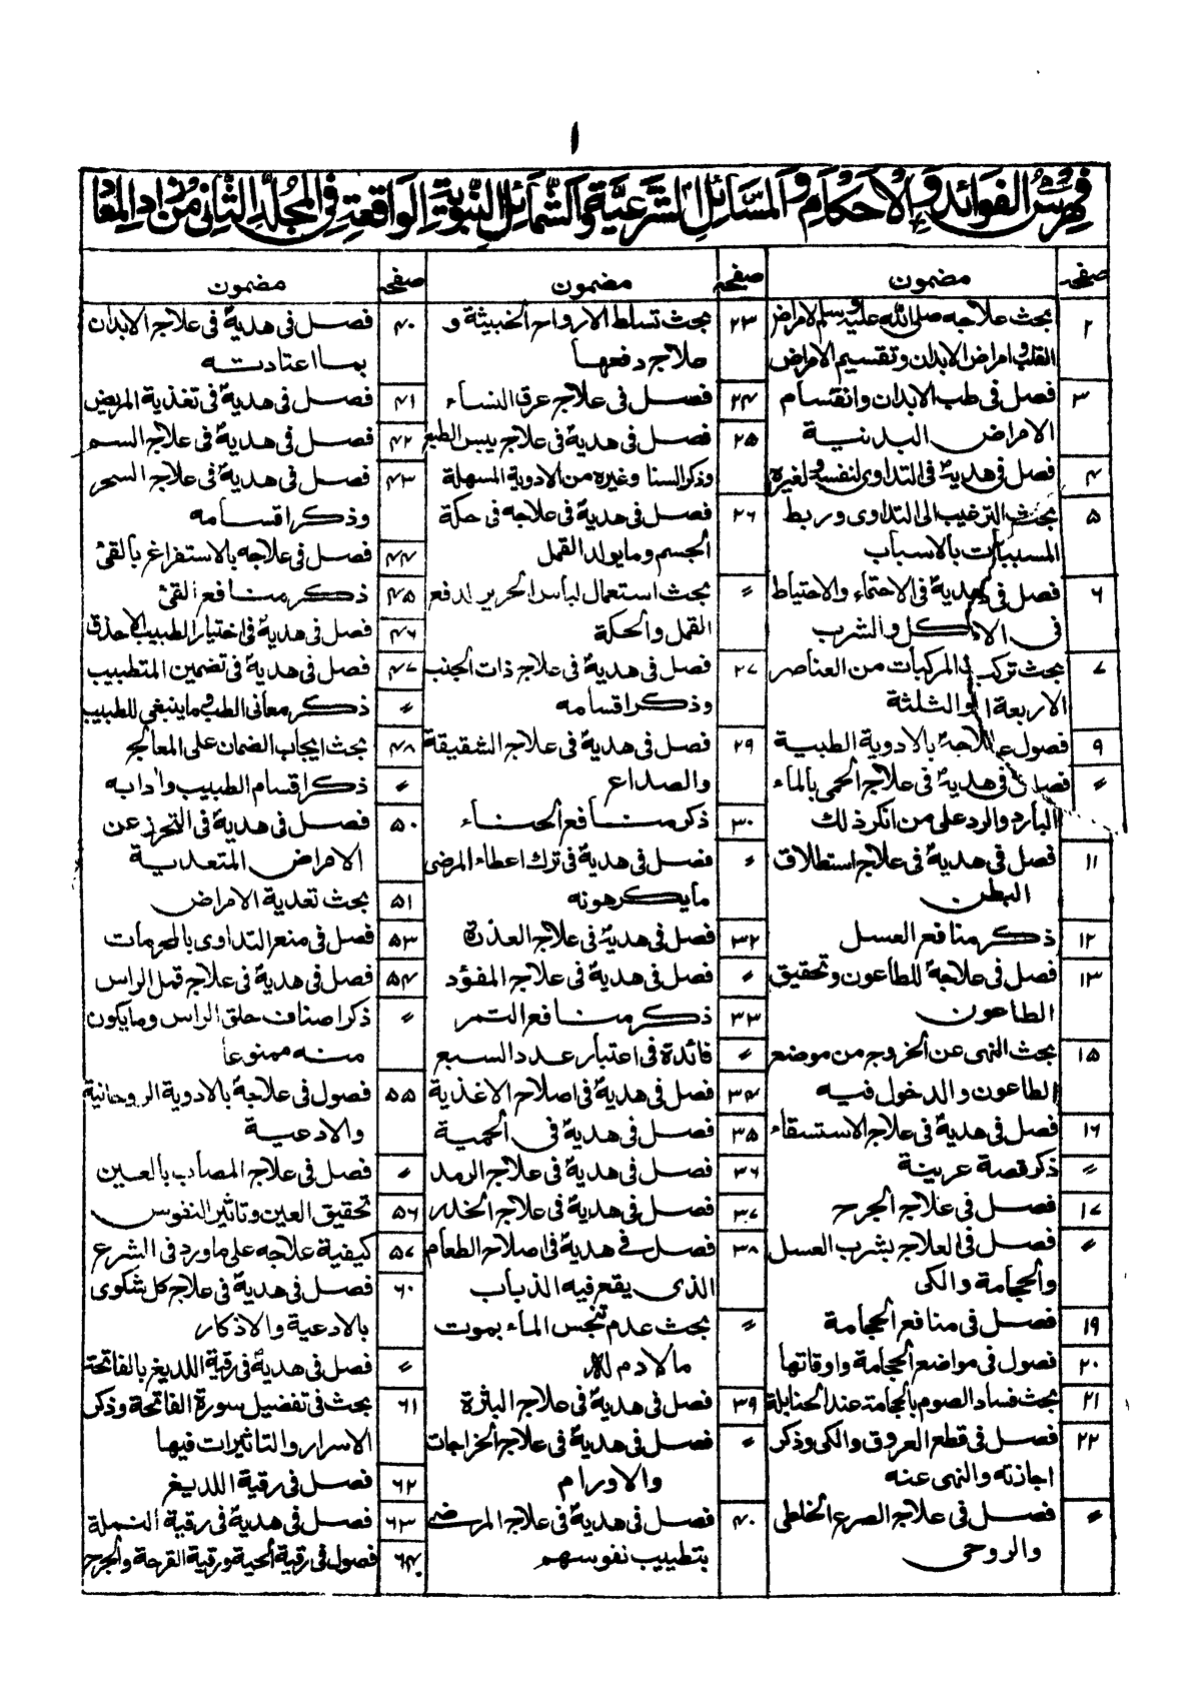 ١
فهرس الفوائد والاحكام والمسائل الشرعية والشمائل النبوية الواقعة فى المجلد الثانى من زاد المعاد
صفحه مضمون
٢ بحث علاجه صلى الله عليه وسلم لامراض
القلب وامراض الابدان وتقسيم الامراض
٣ فصل فى طب الابدان وانقسام
الامراض البدنية
٤ فصل فى هديهٗ فى التداوى لنفسه ولغيره
٥ بحث الترغيب الى التداوى وربط
المسببات بالاسباب
٦ فصل فى هديهٗ فى الاحتماء والاحتياط
فى الاكل والشرب
٧ بحث تركب المركبات من العناصر
الاربعة او الثلثة
٩ فصول علاجهٗ بالادوية الطبية
〃 فصل فى هديهٗ فى علاج الحمى بالماء
البارد والرد على من انكر ذلك
١١ فصل فى هديهٗ فى علاج استطلاق
البطن
١٢ ذكر منافع العسل
١٣ فصل فى علاجهٗ للطاعون وتحقيق
الطاعون
١٥ بحث النهى عن الخروج من موضع
الطاعون والدخول فيه
١٦ فصل فى هديهٗ فى علاج الاستسقاء
〃 ذكر قصة عرينة
١٧ فصل فى علاج الجرح
〃 فصل فى العلاج بشرب العسل
والحجامة والكى
١٩ فصل فى منافع الحجامة
٢٠ فصول فى مواضع الحجامة واوقاتها
٢١ بحث فساد الصوم بالحجامة عند الحنابلة
٢٢ فصل فى قطع العروق والكى وذكر
اجازته والنهى عنه
〃 فصل فى علاج الصرع الخلطى
والروحى
صفحه مضمون
٢٣ بحث تسلط الارواح الخبيثة و
علاج دفعها
٢٤ فصل فى علاج عرق النساء
٢٥ فصل فى هديهٗ فى علاج يبس الطبع
وذكر السنا وغيره من الادوية المسهلة
٢٦ فصل فى هديهٗ فى علاجه فى حكة
الجسم وما يولد القمل
〃 بحث استعمال لباس الحرير لدفع
القمل والحكة
٢٧ فصل فى هديهٗ فى علاج ذات الجنب
وذكر اقسامه
٢٩ فصل فى هديهٗ فى علاج الشقيقة
والصداع
٣٠ ذكر منافع الحناء
〃 فصل فى هديهٗ فى ترك اعطاء المرضى
ما يكرهونه
٣٢ فصل فى هديهٗ فى علاج العذرة
〃 فصل فى هديهٗ فى علاج المفؤد
٣٣ ذكر منافع التمر
〃 فائدة فى اعتبار عدد السبع
٣٤ فصل فى هديهٗ فى اصلاح الاغذية
٣٥ فصل فى هديهٗ فى الحمية
٣٦ فصل فى هديهٗ فى علاج الرمد
٣٧ فصل فى هديهٗ فى علاج الخدر
٣٨ فصل فى هديهٗ فى اصلاح الطعام
الذى يقع فيه الذباب
〃 بحث عدم تنجس الماء بموت
مالادم له
٣٩ فصل فى هديهٗ فى علاج البثرة
〃 فصل فى هديهٗ فى علاج الخراجات
والاورام
٤٠ فصل فى هديهٗ فى علاج المرضى
بتطييب نفوسهم
صفحه مضمون
٤٠ فصل فى هديهٗ فى علاج الابدان
بما اعتادته
٤١ فصل فى هديهٗ فى تغذية المريض
٤٢ فصل فى هديهٗ فى علاج السم
٤٣ فصل فى هديهٗ فى علاج السحر
وذكر اقسامه
٤٤ فصل فى علاجه بالاستفراغ بالقئ
٤٥ ذكر منافع القئ
٤٦ فصل فى هديهٗ فى اختيار الطبيب الاحذق
٤٧ فصل فى هديهٗ فى تضمين المتطبيب
〃 ذكر معانى الطب وما ينبغى للطبيب
٤٨ بحث ايجاب الضمان على المعالج
〃 ذكر اقسام الطبيب وادابه
٥٠ فصل فى هديهٗ فى التحرز عن
الامراض المتعدية
٥١ بحث تعدية الامراض
٥٣ فصل فى منع التداوى بالمحرمات
٥٤ فصل فى هديهٗ فى علاج قمل الراس
〃 ذكر اصناف حلق الراس وما يكون
منه ممنوعا
٥٥ فصول فى علاجهٗ بالادوية الروحانية
والادعية
〃 فصل فى علاج المصاب بالعين
٥٦ تحقيق العين وتاثير النفوس
٥٧ كيفية علاجه على ما ورد فى الشرع
٦٠ فصل فى هديهٗ فى علاج كل شكوى
بالادعية والاذكار
〃 فصل فى هديهٗ فى رقية اللديغ بالفاتحة
٦١ بحث فى تفضيل سورة الفاتحة وذكر
الاسرار والتاثيرات فيها
٦٢ فصل فى رقية اللديغ
٦٣ فصل فى هديهٗ فى رقية النملة
٦٤ فصول فى رقية الحية ورقية القرحة والجرح